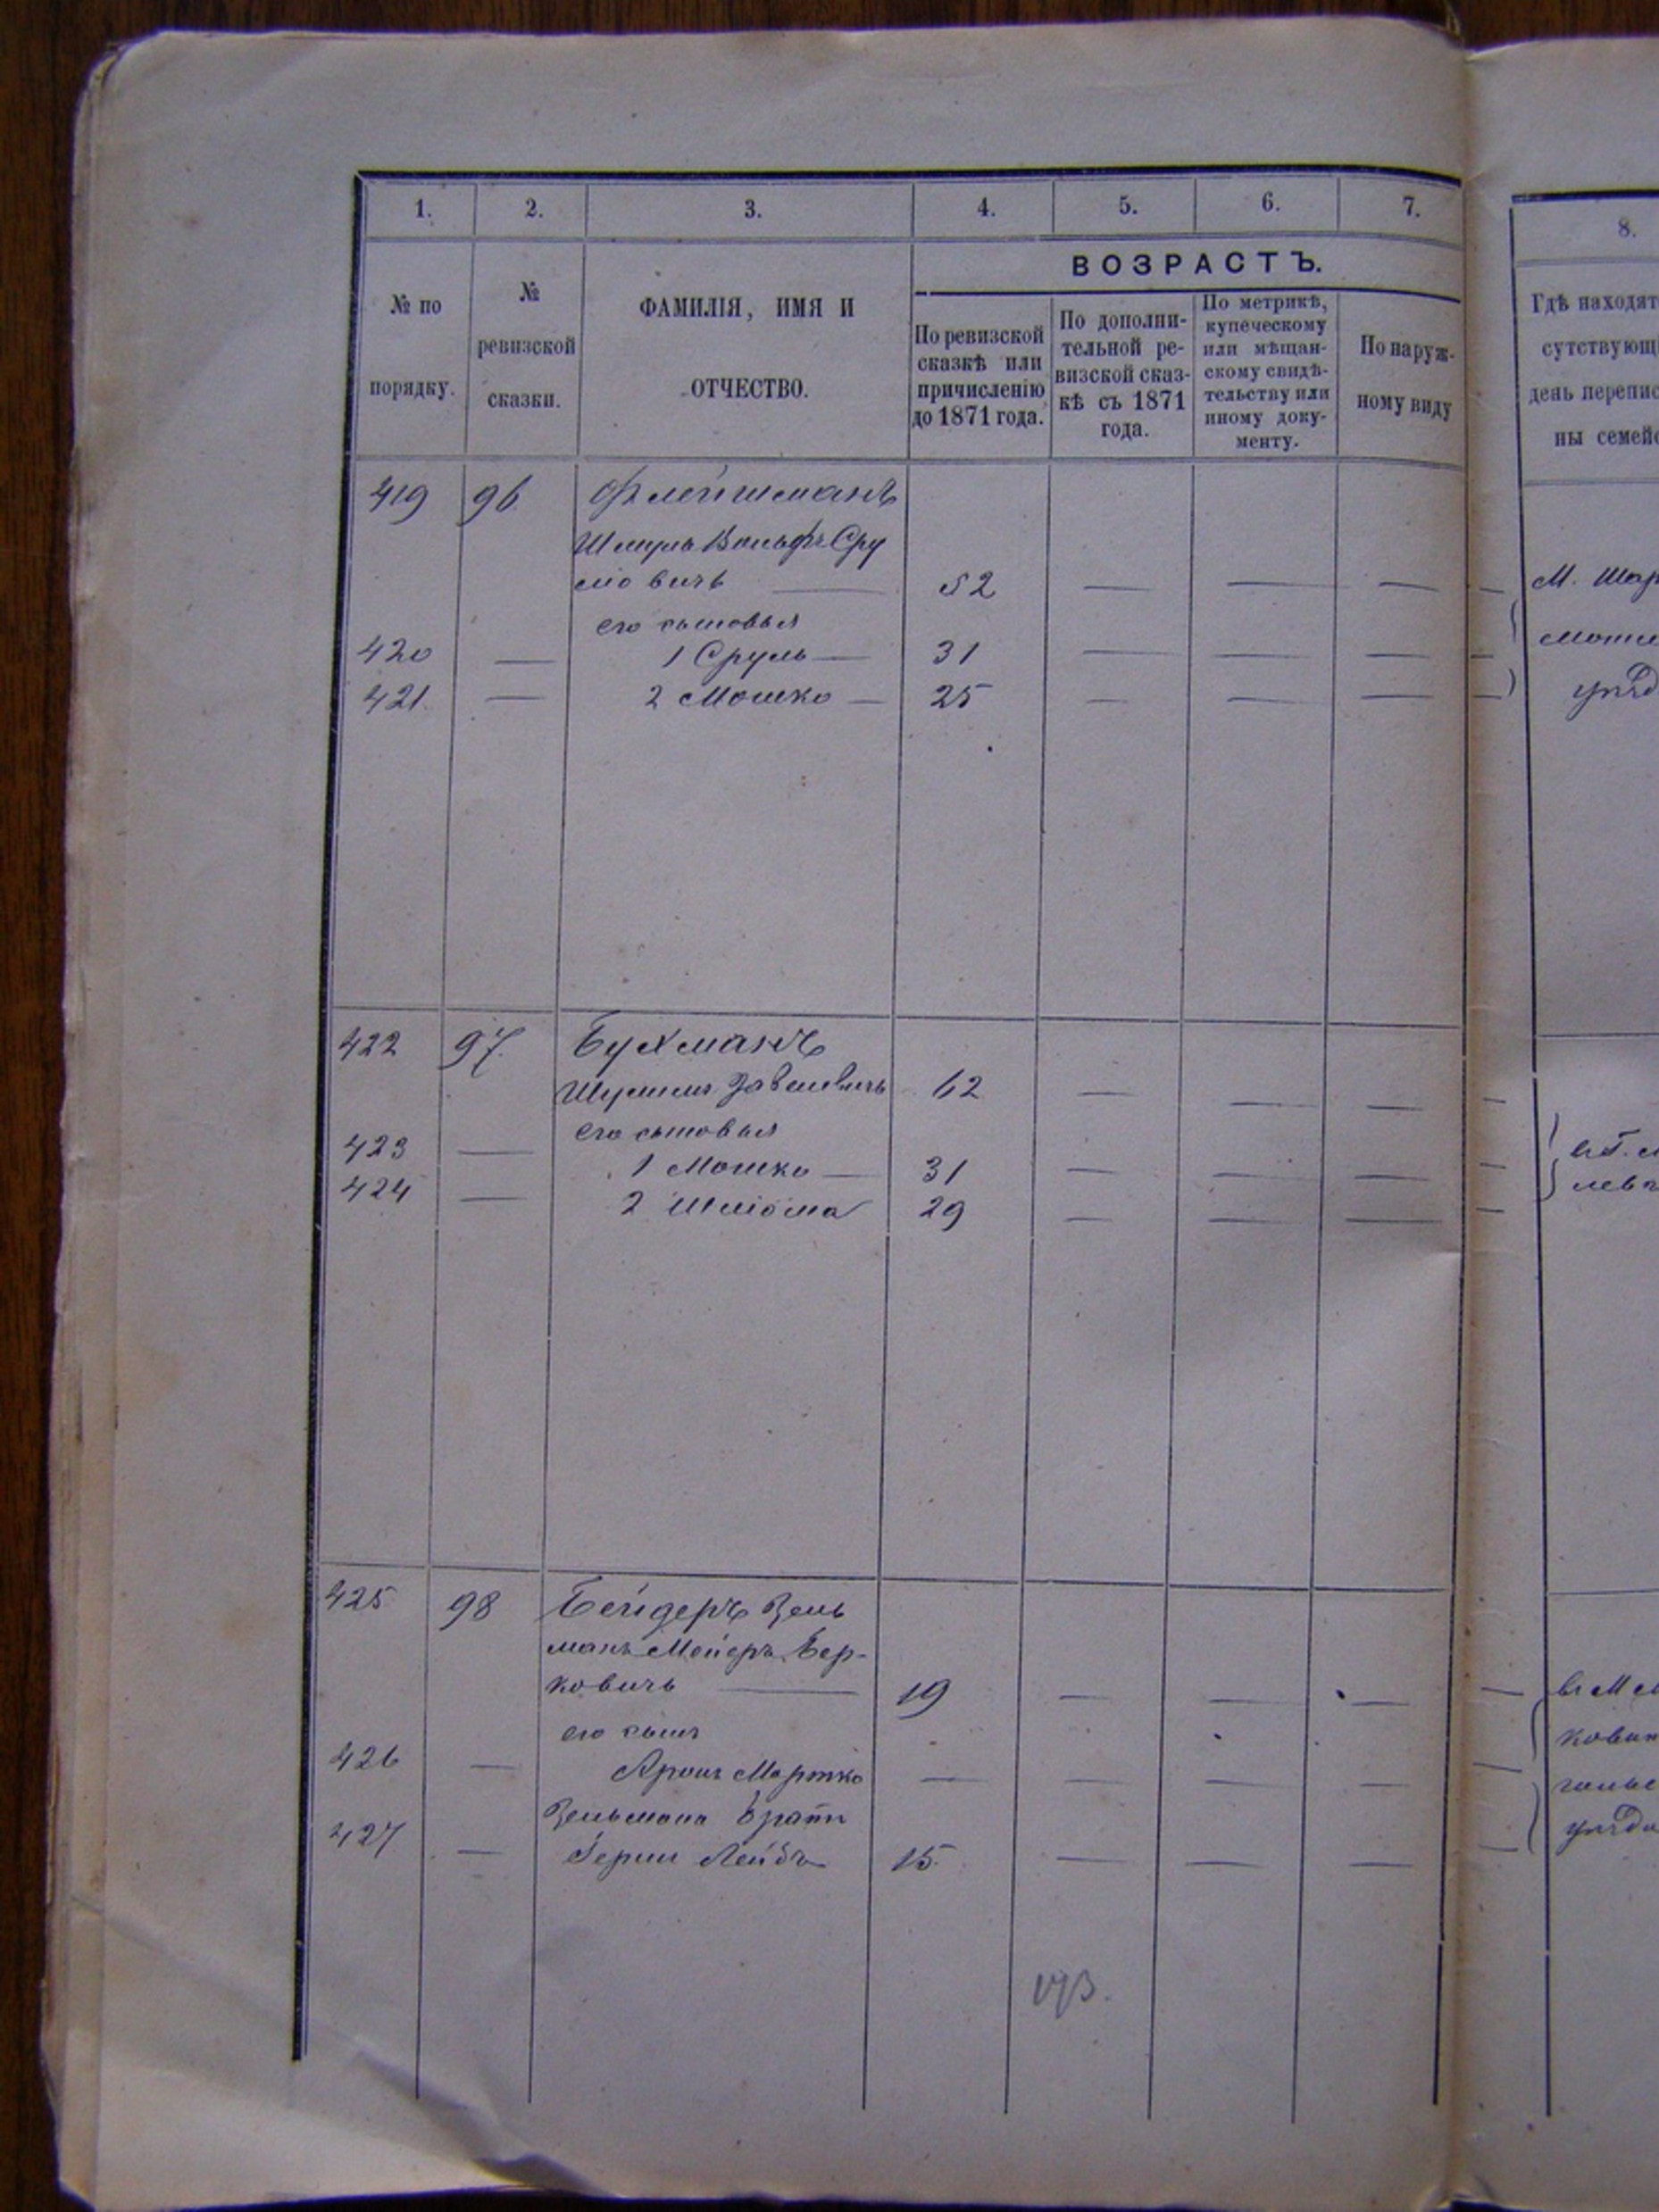 1. 2. 3. 4. 5. 6. 7. 8.
ВОЗРАСТЪ.
№ по порядку.
№ ревизской сказки.
ФАМИЛІЯ, ИМЯ И ОТЧЕСТВО.
По ревизской сказкѣ или причисленію до 1871 года.
По дополни-
тельной ре-
визской сказ-
кѣ съ 1871
года.
По метрикѣ,
купеческому
или мѣщан-
скому свидѣ-
тельству или
иному доку-
менту.
По наруж-
ному виду
Гдѣ находят
сутствующ
день перепис
ны семей
419 96 Флейшманъ
Шмуль Вольфъ Сру
лювичъ — 52 — — — —
его сыновья
420 — 1 Сруль — 31 — — — —
421 — 2 Мошко — 25 — — — —
М. Шар
могил
уѣзд
422 97. Бухманъ
Завелевичъ 62 — — — —
его сыновья
423 — 1 Мошко — 31 — — — —
424 — 2 Шлёма 29 — — — —
425 98 Бейдеръ Зель
манъ Мейеръ Бер-
ковичъ — 19 — — — —
его сынъ
426 — Аронъ Мортко — — — — —
Зельмана братъ
427 — Герш Лейбъ 15 — — — —